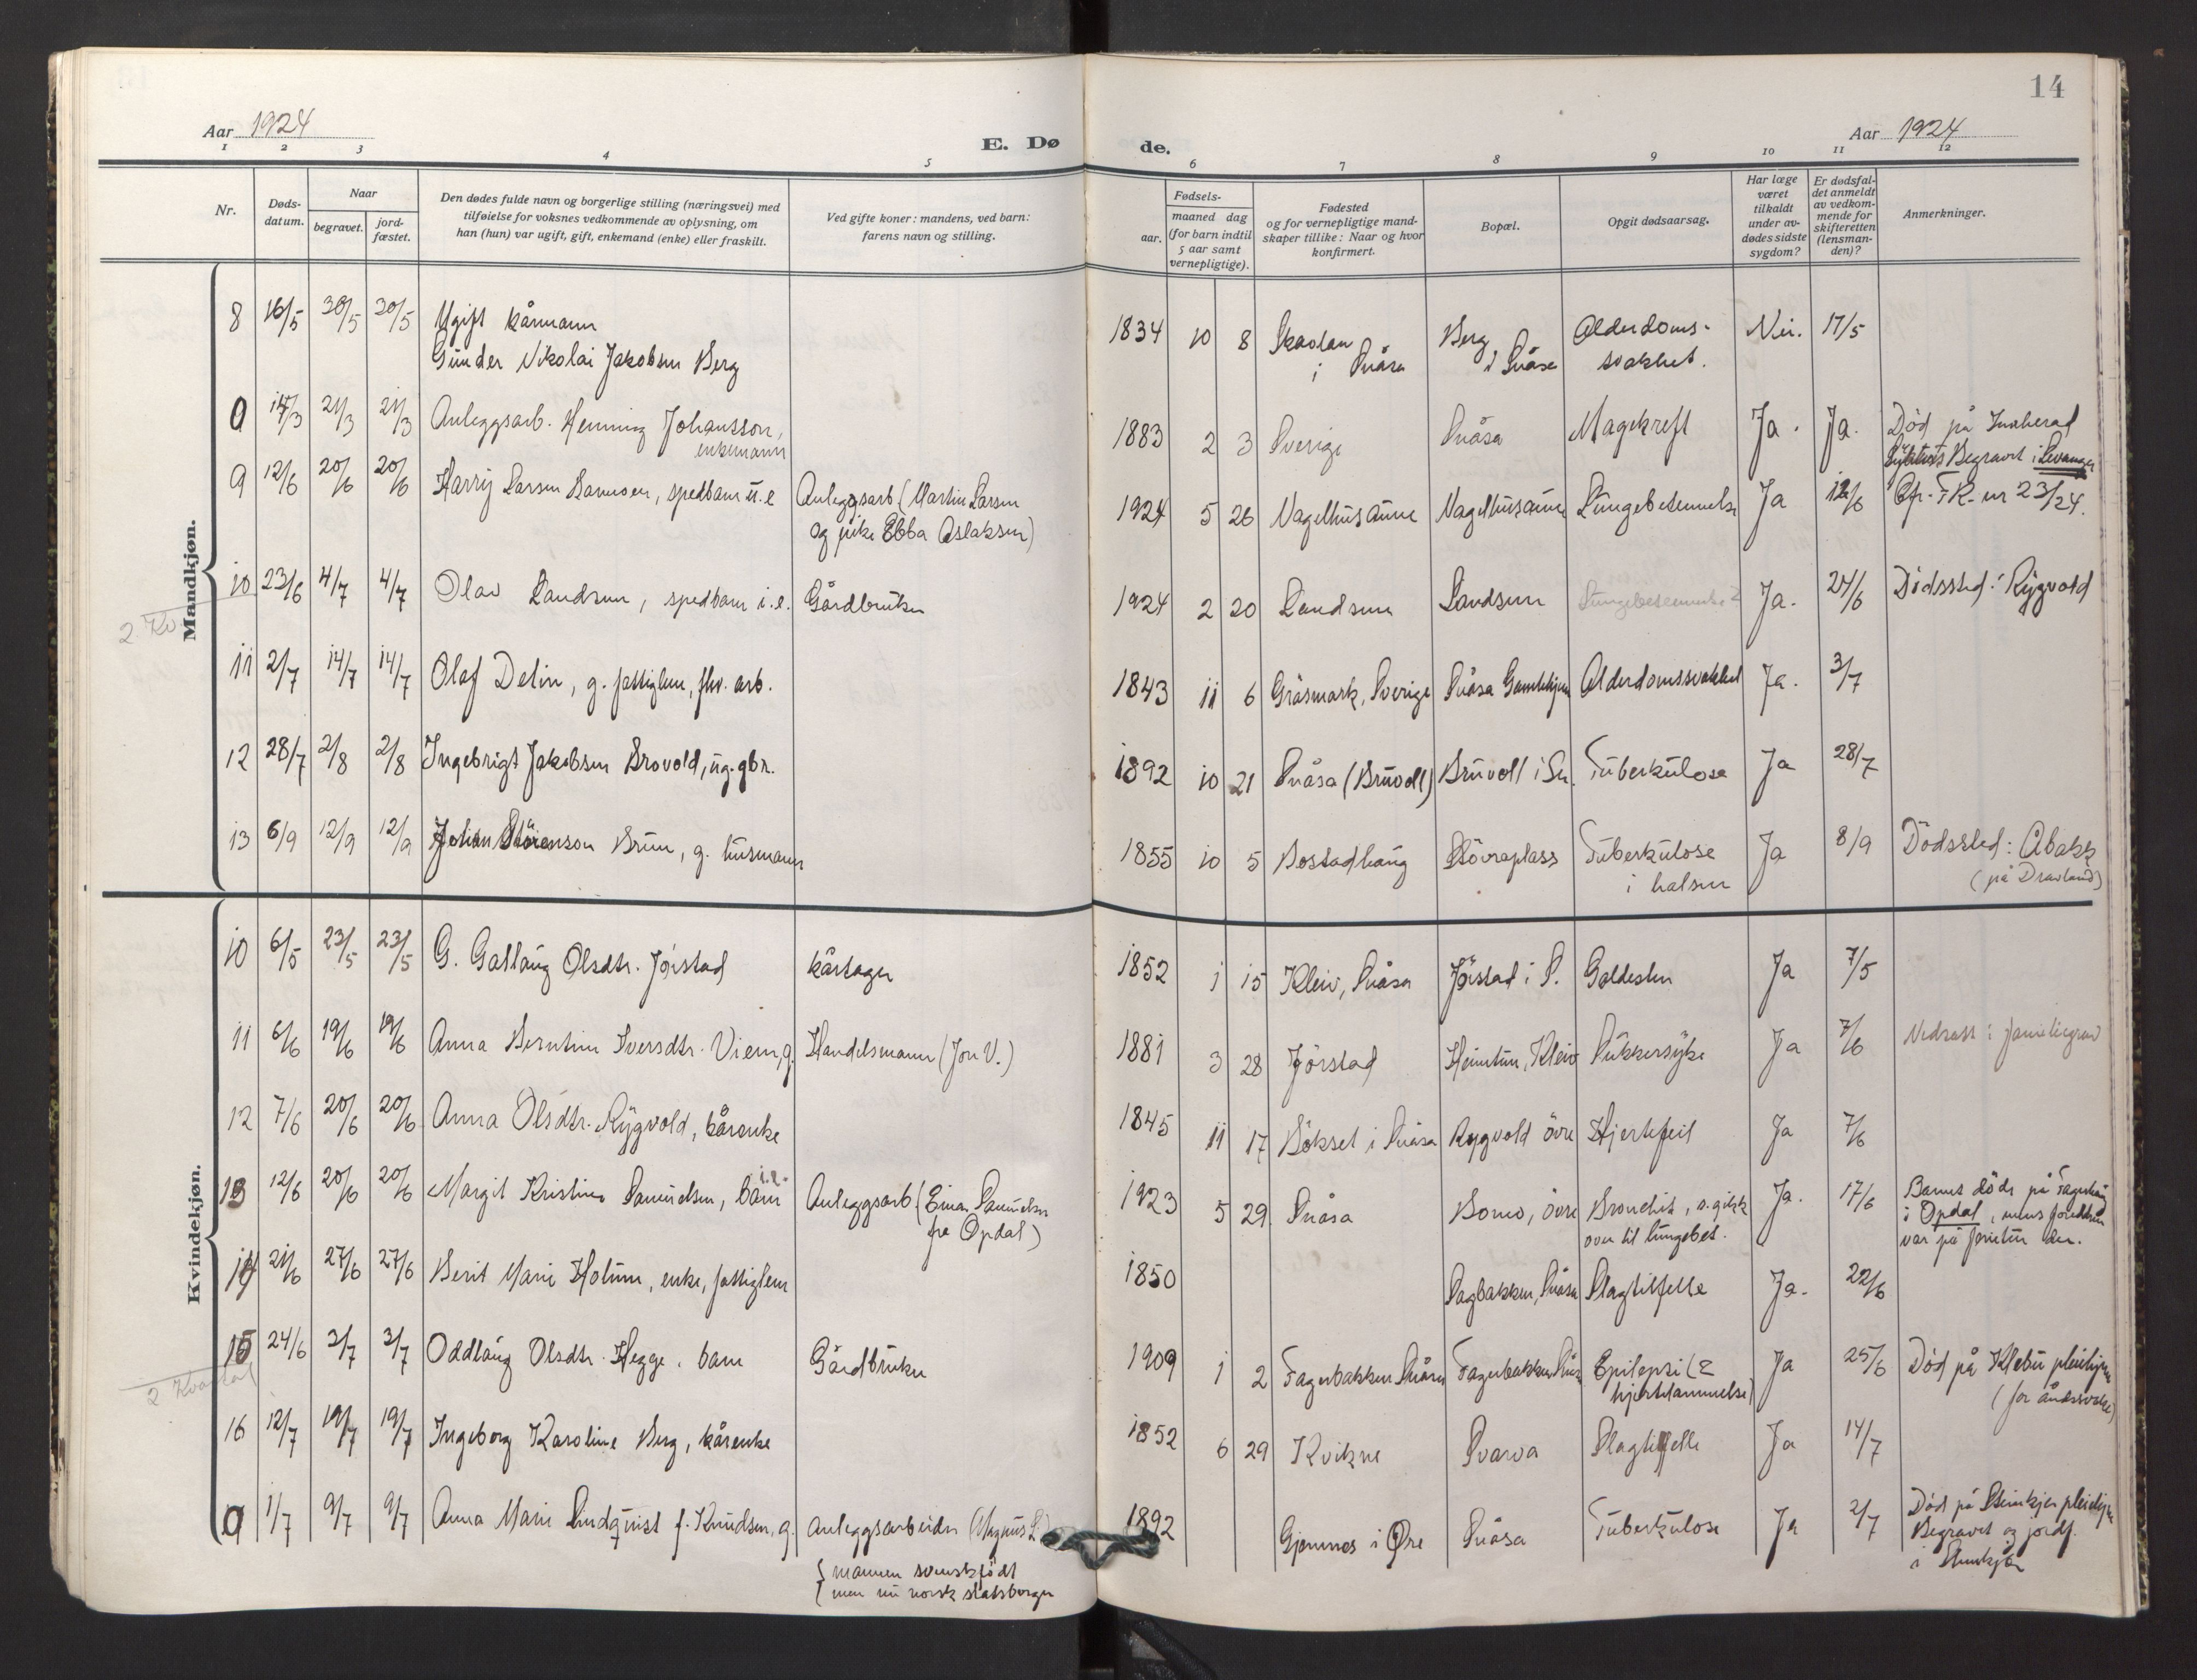 14
Aar 1924
E. Dø de.
Aar 1924
1 2 3 4 5 6 7 8 9 10 11 12
Nr.
Døds-
datum.
Naar
begravet.
jord-
fæstet.
Den dødes fulde navn og borgerlige stilling (næringsvei) med
tilføielse for voksnes vedkommende av oplysning, om
han (hun) var ugift, gift, enkemand (enke) eller fraskilt.
Ved gifte koner: mandens, ved barn:
farens navn og stilling.
Fødsels-
aar.
maaned dag
(for barn indtil
5 aar samt
vernepligtige).
Fødested
og for vernepligtige mand-
skaper tillike: Naar og hvor
konfirmert.
Bopæl.
Opgit dødsaarsag.
Har læge
været
tilkaldt
under av-
dødes sidste
sygdom?
Er dødsfal-
det anmeldt
av vedkom-
mende for
skifteretten
(lensman-
den)?
Anmerkninger.
Mandkjøn.
8 16/5 20/5 20/5 Ugift kårmann
Gunder Nikolai Jakobsen Berg
1834 10 8 i Snåsa Berg i Snåsa Alderdoms-
svakhet. Nei. 17/5
0 14/3 21/3 21/3 Anleggsarb. Henning Johansson,
enkemann
1883 2 3 Sverige Snåsa Magekreft Ja. Ja. Død på Innherad
Sykehus Begravet i Levanger
9 12/6 20/6 20/6 Harry Larsen, spedbarn u.e Anleggsarb (Martin Larsen
og pike Ebba Aslaksen)
1924 5 26 Nagelhusaune Nagelhusaune Lungebetennelse Ja 12/6 Cfr. FR. nr 23/24.
10 23/6 4/7 4/7 Olav Landsem, spedbarn i.e. Gårdbruker
1924 2 20 Landsem Landsem Lungebetennelse Ja. 24/6 Dödssted: Rygvold
2 Kv.
11 2/7 14/7 14/7 Olaf Delin, g. fattiglem, fhv. arb.
1843 11 6 Gräsmark, Sverige Snåsa Gamlehjem Alderdomssvakhet Ja. 3/7
12 28/7 2/8 2/8 Ingebrigt Jakobsen Brovold, ug. gbr.
1892 10 21 Snåsa (Bruvoll) Bruvoll i Sn. Tuberkulose Ja 28/7
13 6/9 12/9 12/9 Johan Störenson Brun, g. husmann
1855 10 5 Bostadhaug Stövraplass Tuberkulose
i halsen Ja 8/9 Dödssted: Abakk
(på Dravland)
Kvindekjøn.
10 6/5 23/5 23/5 G. Gallaug Olsdtr. Jörstad kårtager
1852 1 15 Kleiv, Snåsa Jörstad i S. Galdesten Ja 7/5
11 6/6 19/6 19/6 Anna Berntine Iversdtr. Viem, g. Handelsmann (Jon V.)
1881 3 28 Jörstad Heimtun, Kleiv Sukkersyke Ja 7/6 Nedsatt i familiegrav
12 7/6 20/6 20/6 Anna Olsdtr. Rygvold, kårenke
1845 11 17 Bökset i Snåsa Rygvold övre Hjertefeil Ja 7/6
13 12/6 20/6 20/6 Margit Kristine Samuelsen, barn i.e. Anleggsarb (Einar Samuelsen
fra Opdal)
1923 5 29 Snåsa Bomo, övre Bronchit, s. gikk
over til lungebet. Ja. 17/6 Barnet döde på Fagerhaug
i Opdal, mens foreldrene
var på ferietur der.
14 21/6 27/6 27/6 Berit Marie Holum, enke, fattiglem
1850 Sagbakken, Snåsa Slagtilfelle Ja. 22/6
15 24/6 3/7 3/7 Oddlaug Olsdtr. Hegge, barn Gårdbruker
1909 1 2 Fagerbakken Snåsa Fagerbakken Snåsa Epilepsi (&
hjertelammelse) Ja 25/6 Död på Klebu pleiehjem
(for åndssvake)
2 Kvartal
16 12/7 19/7 19/7 Ingeborg Karoline Berg, kårenke
1852 6 29 Kvikne Svarva Slagtilfelle Ja 14/7
0 1/7 9/7 9/7 Anna Marie Lindqvist f. Knudsen, g. Anleggsarbeider (Magnus L.)
{ mannen svenskfödt
men nu norsk statsborger
1892 Gjemnes i Øre Snåsa Tuberkulose Ja 2/7 Död på Steinkjer pleiehjem
Begravet og jordf.
i Steinkjer